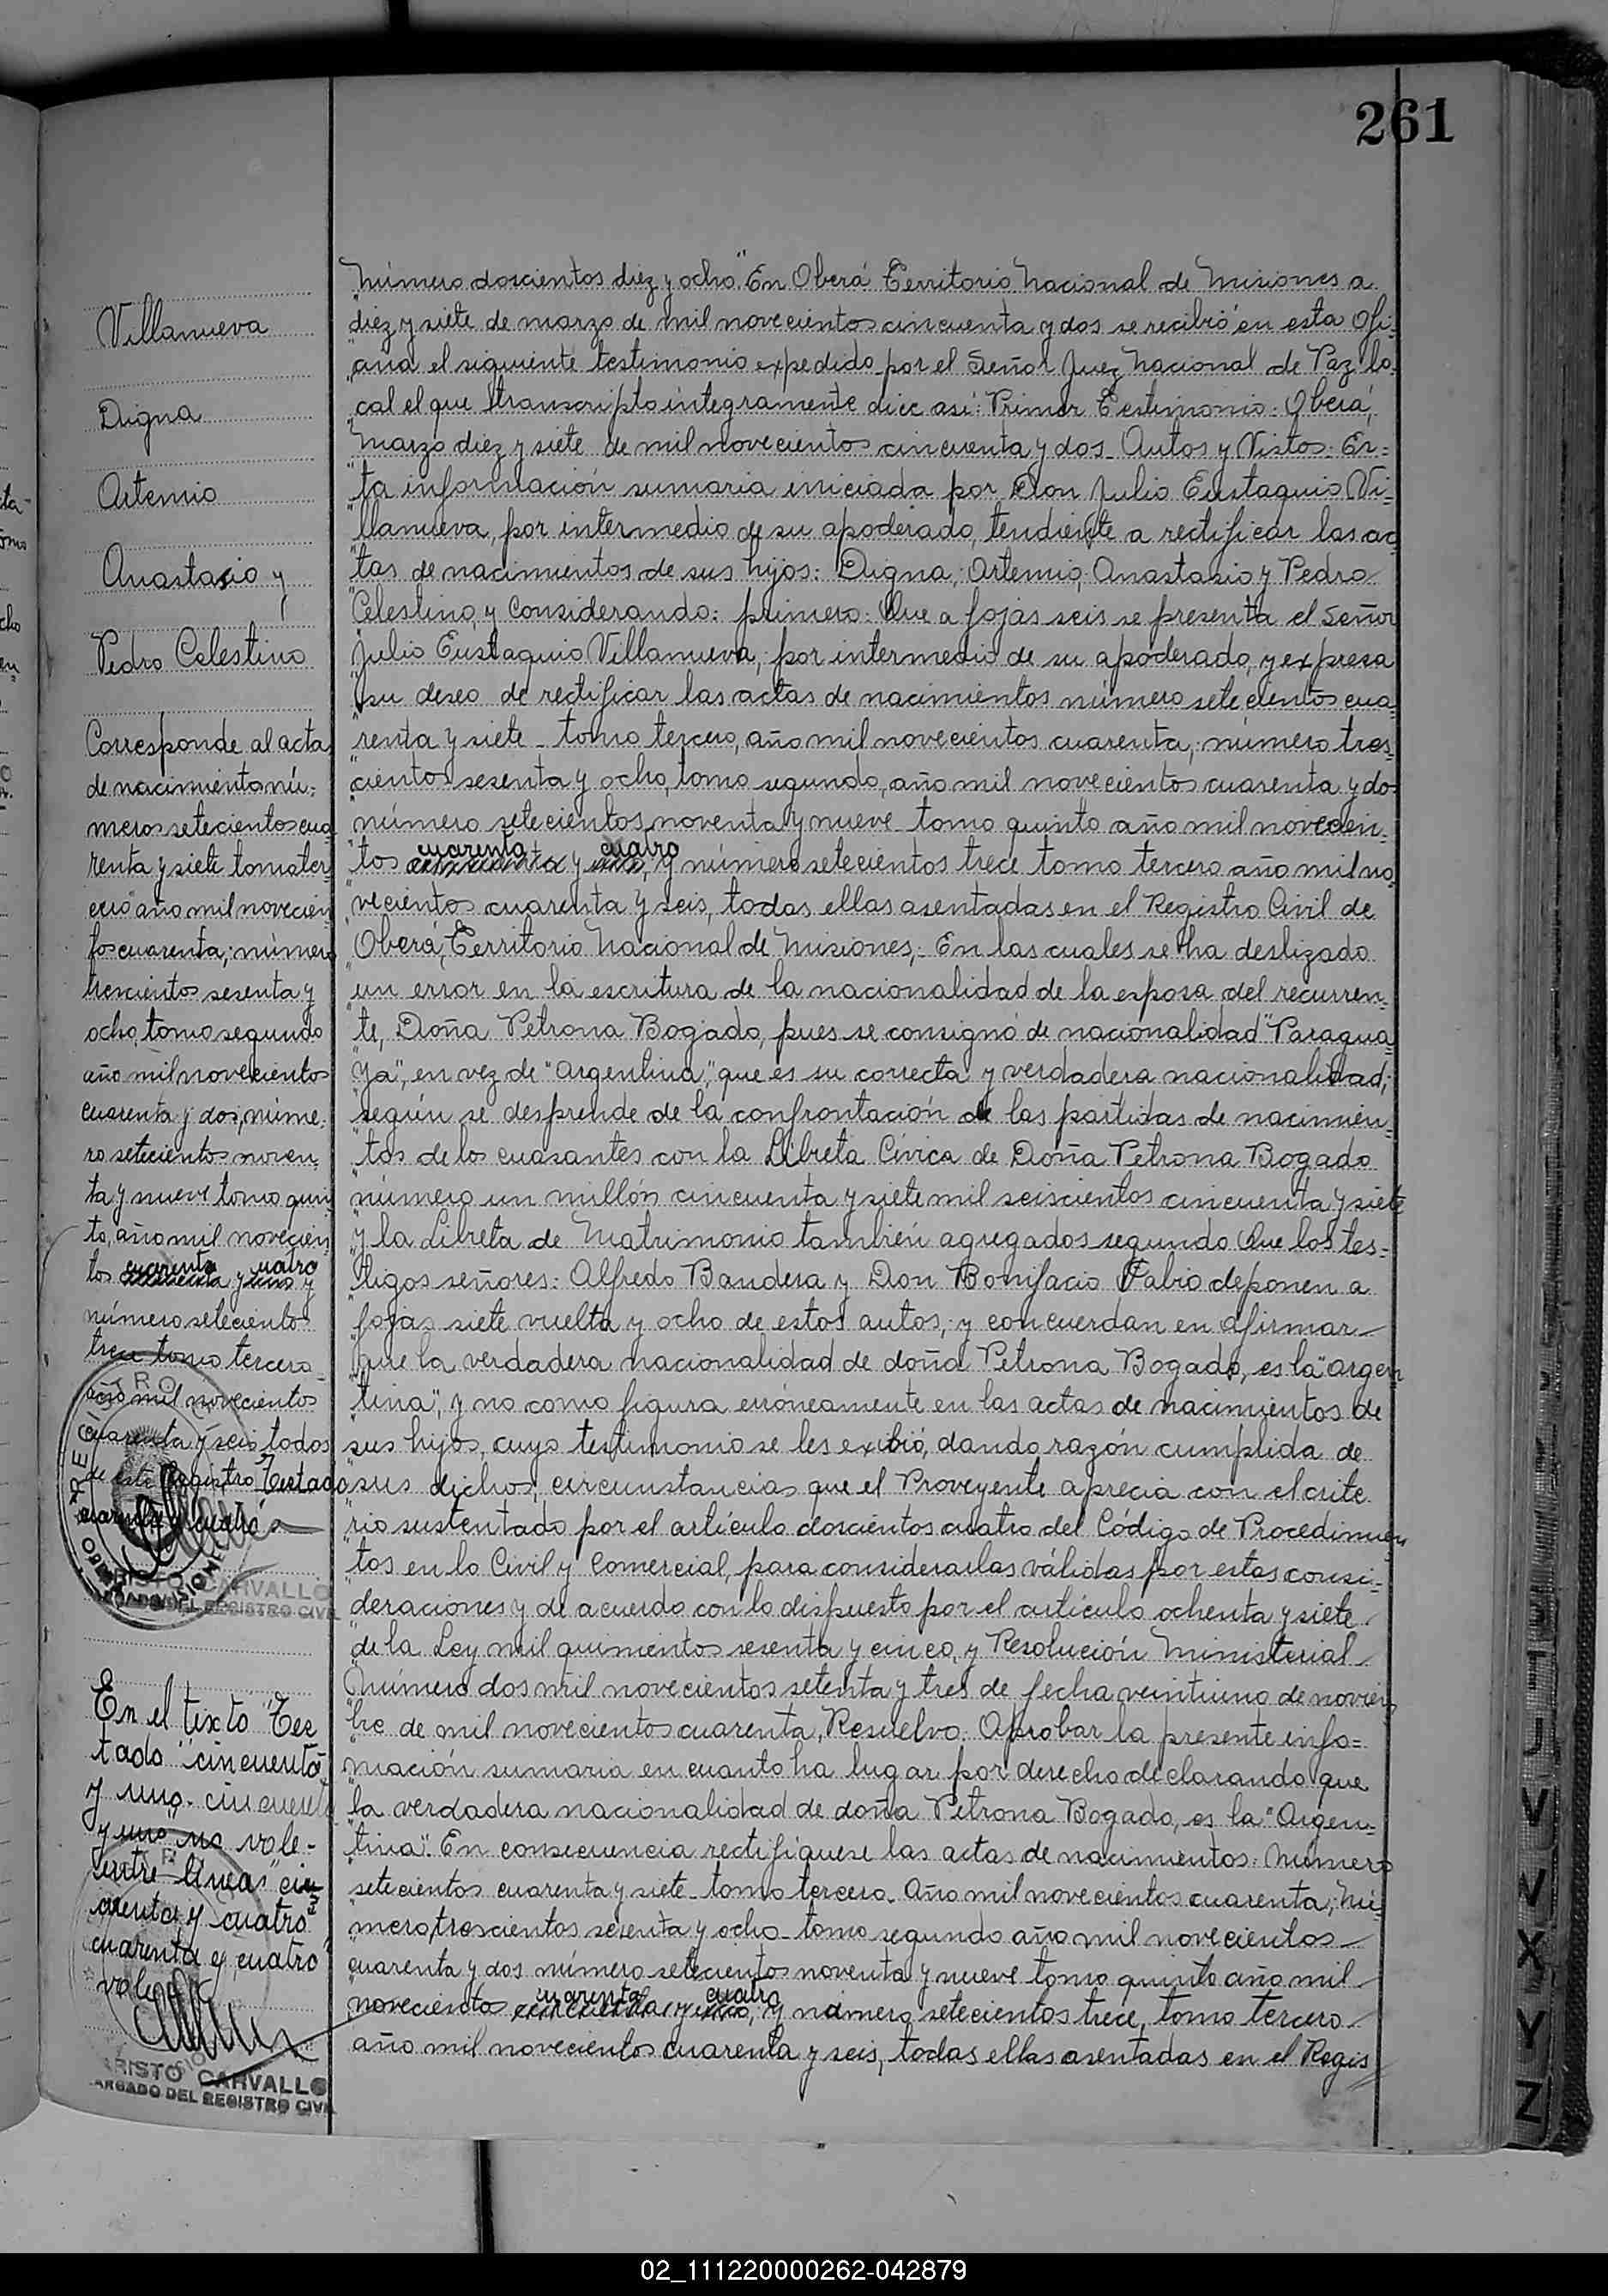 261
Villanueva
Digna
Artemio
Anastasio y
Pedro Celestino
Corresponde al acta
de nacimiento nú-
meros setecientos cua
renta y siete tomo ter-
cero año mil novecien
tos cuarenta; número
trescientos sesenta y
ocho, tomo segundo
año mil novecientos
cuarenta y dos, núme-
ro setecientos noven
ta y nueve tomo quin
to, año mil novecien
cuarenta cuatro
tos cincuenta y uno y
número setecientos
trece tomo tercero
año mil novecientos
cuarenta y seis todos
de este Registro, Testado
cuarenta y cuatro
REGISTRO
OBERA MISIONES
ARISTO CARVALLO
ARGADO DEL REGISTRO CIVIL
En el texto "Tes
tado "cincuenta
y uno - cincuenta
y uno" no vale -
entre lineas "cu
arenta y cuatro
cuarenta y cuatro"
vale
ARISTO CARVALLO
ARGADO DEL REGISTRO CIVIL
"Número doscientos diez y ocho" En Oberá Territorio Nacional de Misiones a
"diez y siete de marzo de mil novecientos cincuenta y dos se recibió en esta Ofi-
"cina el siguiente testimonio expedido por el Señor Juez Nacional de Paz lo-
"cal el que transcripto íntegramente dice así: Primer Testimonio: Oberá,
"Marzo diez y siete de mil novecientos cincuenta y dos. Autos y Vistos: Es=
"ta información sumaria iniciada por Don Julio Eustaquio Vi=
"llanueva, por intermedio de su apoderado, tendiente a rectificar las ac
"tas de nacimientos de sus hijos: Digna, Artemio, Anastasio y Pedro
"Celestino, y Considerando: primero: Que a fojas seis se presenta el Señor
"Julio Eustaquio Villanueva, por intermedio de su apoderado, y expresa
"su deseo de rectificar las actas de nacimientos número setecientos cua-
"renta y siete - tomo tercero, año mil novecientos cuarenta; número tres
"cientos sesenta y ocho, tomo segundo, año mil novecientos cuarenta y dos
"número setecientos noventa y nueve tomo quinto año mil novecien-
cuarenta cuatro
"tos cincuenta y uno, y número setecientos trece tomo tercero año mil no
"vecientos cuarenta y seis, todas ellas asentadas en el Registro Civil de
"Oberá, Territorio Nacional de Misiones; En las cuales se ha deslizado
"un error en la escritura de la nacionalidad de la esposa del recurren-
"te, Doña Petrona Bogado, pues se consignó de nacionalidad "Paragua
"ya", en vez de "argentina", que es su correcta y verdadera nacionalidad;
"según se desprende de la confrontación de las partidas de nacimien-
"tos de los causantes con la Libreta Cívica de Doña Petrona Bogado
"número un millón cincuenta y siete mil seiscientos cincuenta y siete
"y la Libreta de Matrimonio también agregados segundo Que los tes=
"tigos señores: Alfredo Bandera y Don Bonifacio Fabio deponen a
"fojas siete vuelta y ocho de estos autos, y concuerdan en afirmar
"que la verdadera nacionalidad de doña Petrona Bogado, es la "argen
"tina", y no como figura erróneamente en las actas de nacimientos de
sus hijos, cuyo testimonio se les exibió, dando razón cumplida de
"sus dichos; circunstancias que el Proveyente aprecia con el crite
"rio sustentado por el artículo doscientos cuatro del Código de Procedimien
"tos en lo Civil y Comercial, para considerarlas válidas por estas consi-
"deraciones y de acuerdo con lo dispuesto por el artículo ochenta y siete
"de la Ley mil quinientos sesenta y cinco, y Resolución Ministerial
"número dos mil novecientos setenta y tres de fecha veintiuno de noviem
"bre de mil novecientos cuarenta, Resuelvo: Aprobar la presente info=
"mación sumaria en cuanto ha lugar por derecho declarando que
"la verdadera nacionalidad de doña Petrona Bogado, es la "Argen-
"tina". En consecuencia rectifíquese las actas de nacimientos: Número
"setecientos cuarenta y siete - tomo tercero. Año mil novecientos cuarenta; Nú
"mero, trescientos sesenta y ocho - tomo segundo año mil novecientos
"cuarenta y dos número setecientos noventa y nueve tomo quinto año mil
cuarenta cuatro
"novecientos cincuenta y uno; y número setecientos trece, tomo tercero
"año mil novecientos cuarenta y seis, todas ellas asentadas en el Regis
T
U
V
V
X
Y
Z
02_111220000262-042879